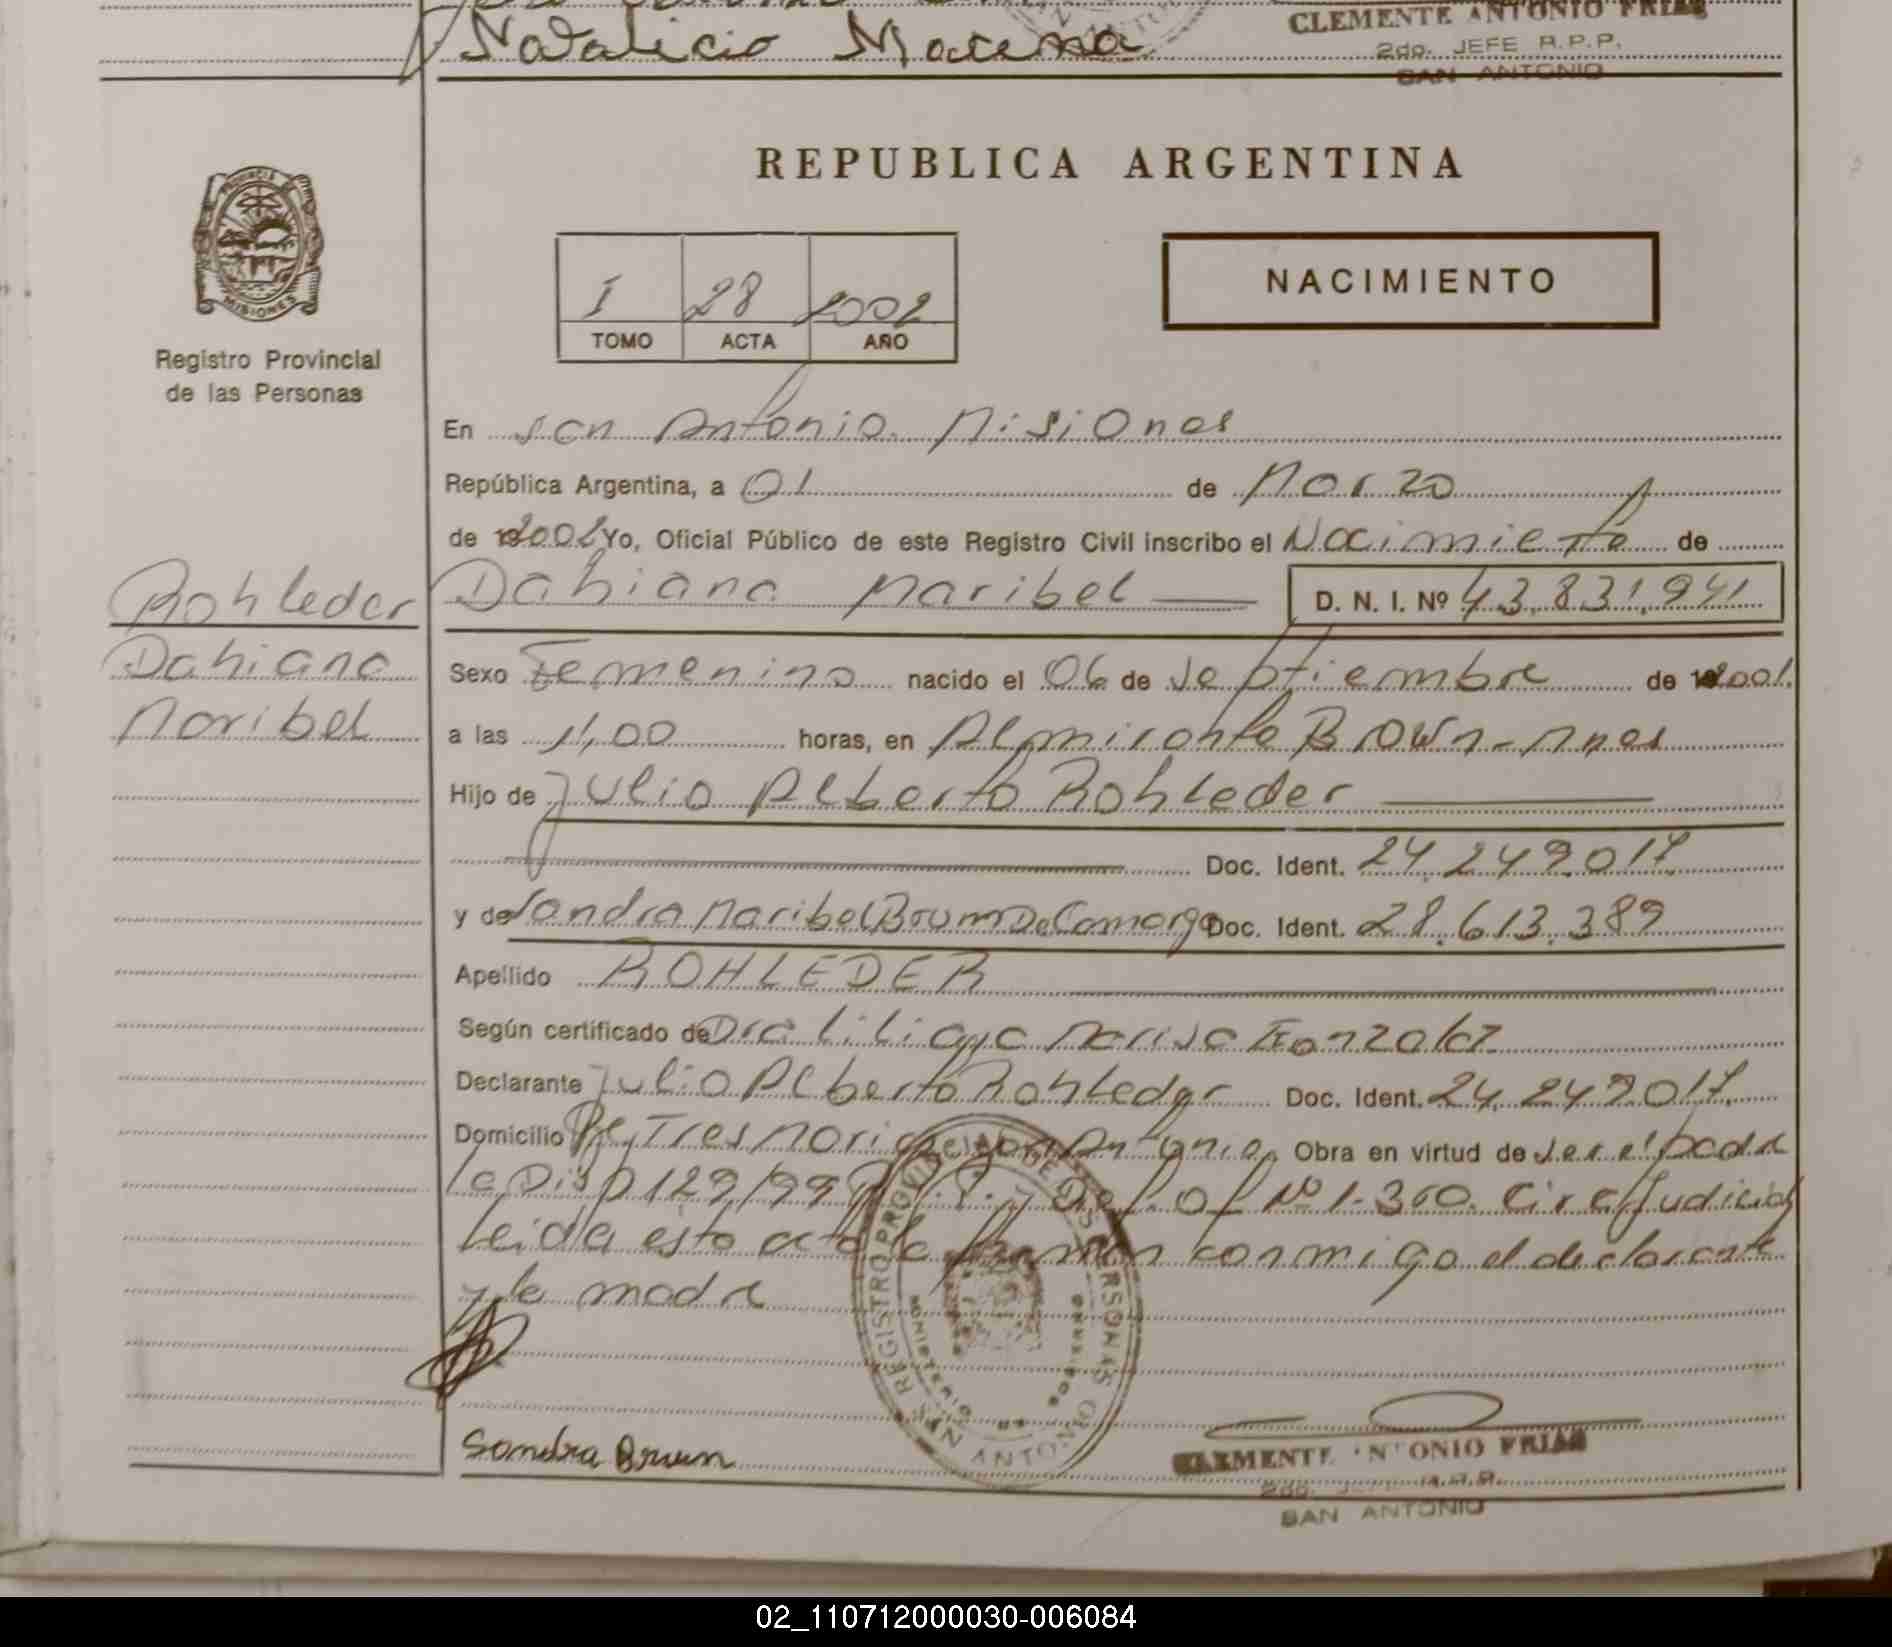 Natalicio Macena
CLEMENTE ANTONIO FRIAS
2do. JEFE R.P.P.
SAN ANTONIO
REPUBLICA ARGENTINA
PROVINCIA DE
MISIONES
Registro Provincial
de las Personas
I 28 2002
TOMO ACTA AÑO
NACIMIENTO
En San Antonio Misiones
República Argentina, a 01 de Marzo
de 2002 Yo, Oficial Público de este Registro Civil inscribo el Nacimiento de
Rohleder
Dahiana
Maribel
Dahiana Maribel D. N. I. Nº 43.831.941
Sexo Femenino nacido el 06 de Septiembre de 2001.
a las 11,00 horas, en Almirante Brown - Mnes
Hijo de Julio Alberto Rohleder
Doc. Ident. 24.249.017
y de Sandra Maribel Brum De Camargo Doc. Ident. 28.613.389
Apellido ROHLEDER
Según certificado de Dra Liliana Marisa Gonzalez
Declarante Julio Alberto Rohleder Doc. Ident. 24.249.017.
Domicilio Pje Tres Marias San Antonio. Obra en virtud de ser el padre
la Disp 129/99 Nº 1.360. Circ Judicial
Leida esta acta la firman conmigo el declarante
y la madre
REGISTRO PROVINCIAL DE LAS PERSONAS
MINISTERIO
SAN ANTONIO
Sandra Brum
CLEMENTE ANTONIO FRIAS
2do. JEFE R.P.P.
SAN ANTONIO
02_110712000030-006084